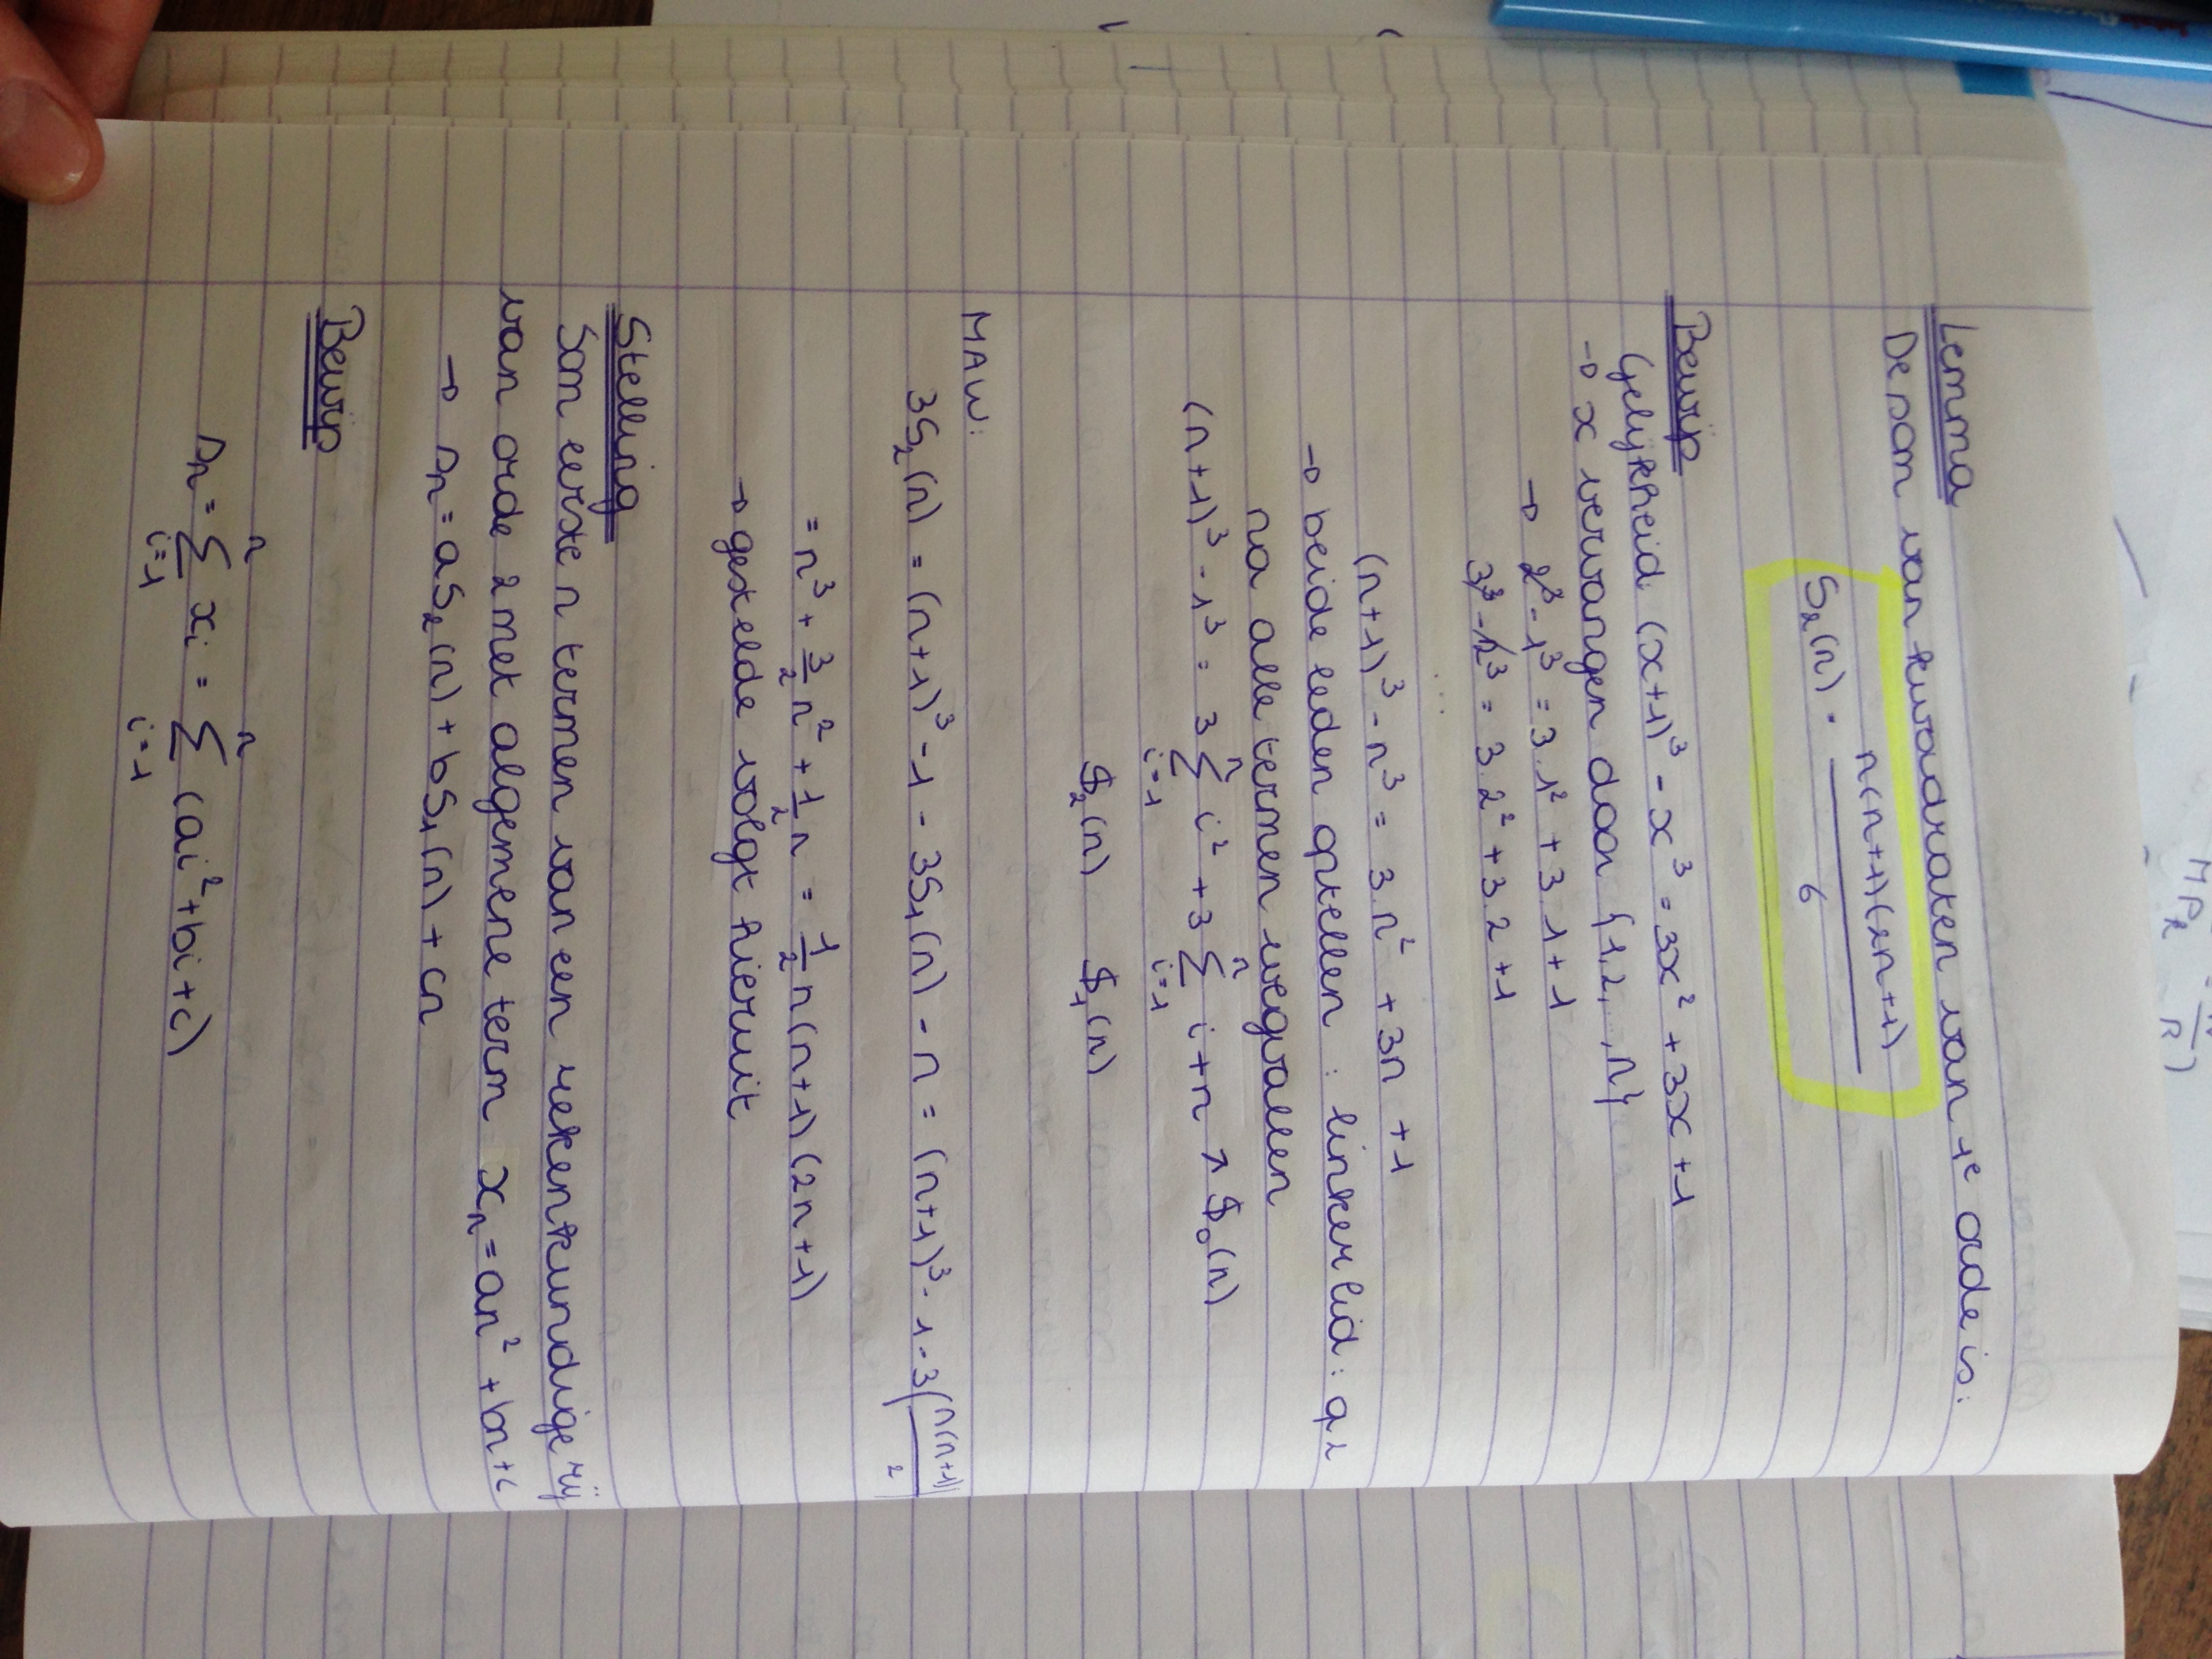 MP_R = N/R )
Lemma
De som van kwadraten van 1e orde is:
S₂(n) = n(n+1)(2n+1) / 6
Bewijs
Gelijkheid (x+1)³ - x³ = 3x² + 3x + 1
→ x vervangen door {1,2,...,n}
→ 2³ - 1³ = 3.1² + 3.1 + 1
3³ - 2³ = 3.2² + 3.2 + 1
...
(n+1)³ - n³ = 3.n² + 3n + 1
→ beide leden optellen : linkerlid: op 2
na alle termen wegvallen
(n+1)³ - 1³ = 3 ∑_{i=1}^{n} i² + 3 ∑_{i=1}^{n} i + n ↗ S₀(n)
S₂(n) S₁(n)
MAW:
3S₂(n) = (n+1)³ - 1 - 3S₁(n) - n = (n+1)³ - 1 - 3(n(n+1)/2
= n³ + 3/2 n² + 1/2 n = 1/2 n(n+1)(2n+1)
→ gestelde volgt hieruit
Stelling
Som eerste n termen van een rekenkundige rij
van orde 2 met algemene term xₙ = an² + bn + c
→ sₙ = aS₂(n) + bS₁(n) + cn
Bewijs
sₙ = ∑_{i=1}^{n} xᵢ = ∑_{i=1}^{n} (ai² + bi + c)